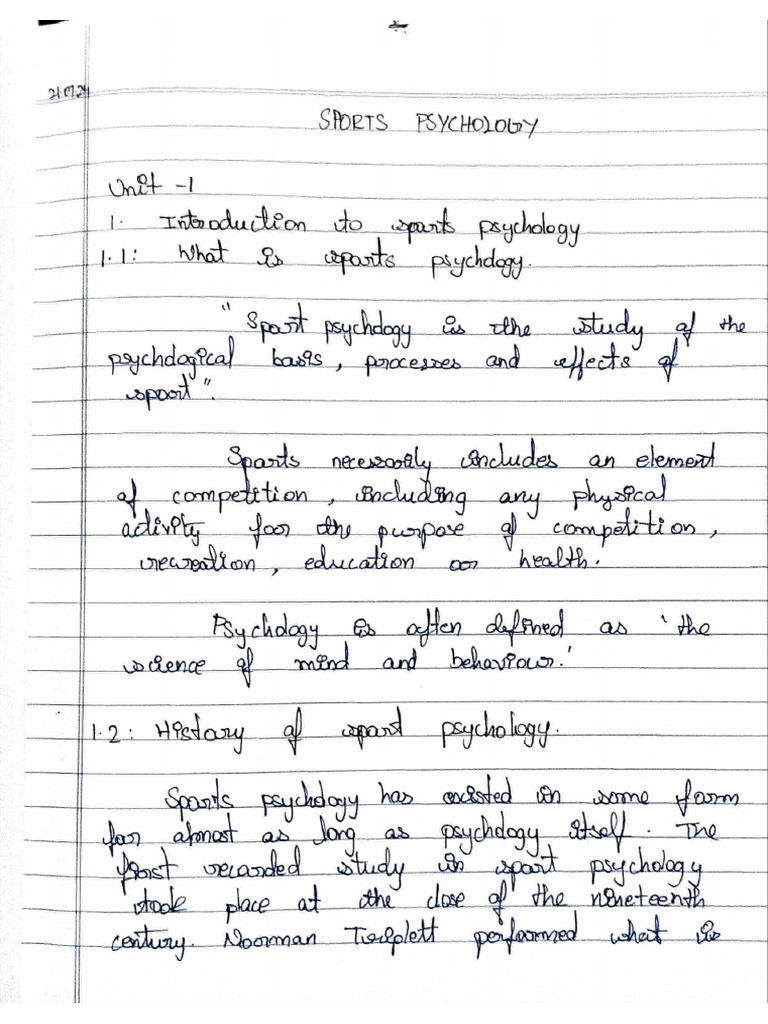 21.07.24
SPORTS PSYCHOLOGY
Unit -1
1. Introduction to sports psychology
1.1: What is sports psychology.
"Sport psychology is the study of the
psychological basis, processes and effects of
sport".
Sports necessarily includes an element
of competition, including any physical
activity for the purpose of competition,
recreation, education or health.
Psychology is often defined as 'the
science of mind and behaviour.'
1.2: History of sport psychology.
Sports psychology has existed in some form
for almost as long as psychology itself. The
first recorded study in sport psychology
took place at the close of the nineteenth
century. Norman Triplett performed what is